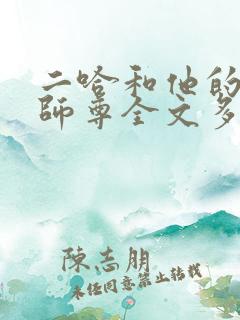 二哈和他的
師尊全文多
陳志朋
未任同意禁止转载